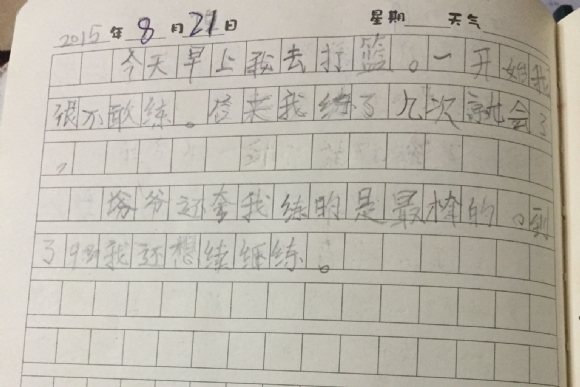 2015年8月21日 星期 天气
今天早上我去打篮。一开始我
很不敢练。后来我练了几次就会了
，
爷还夸我练的是最棒的。到
了9点我还想续继练。